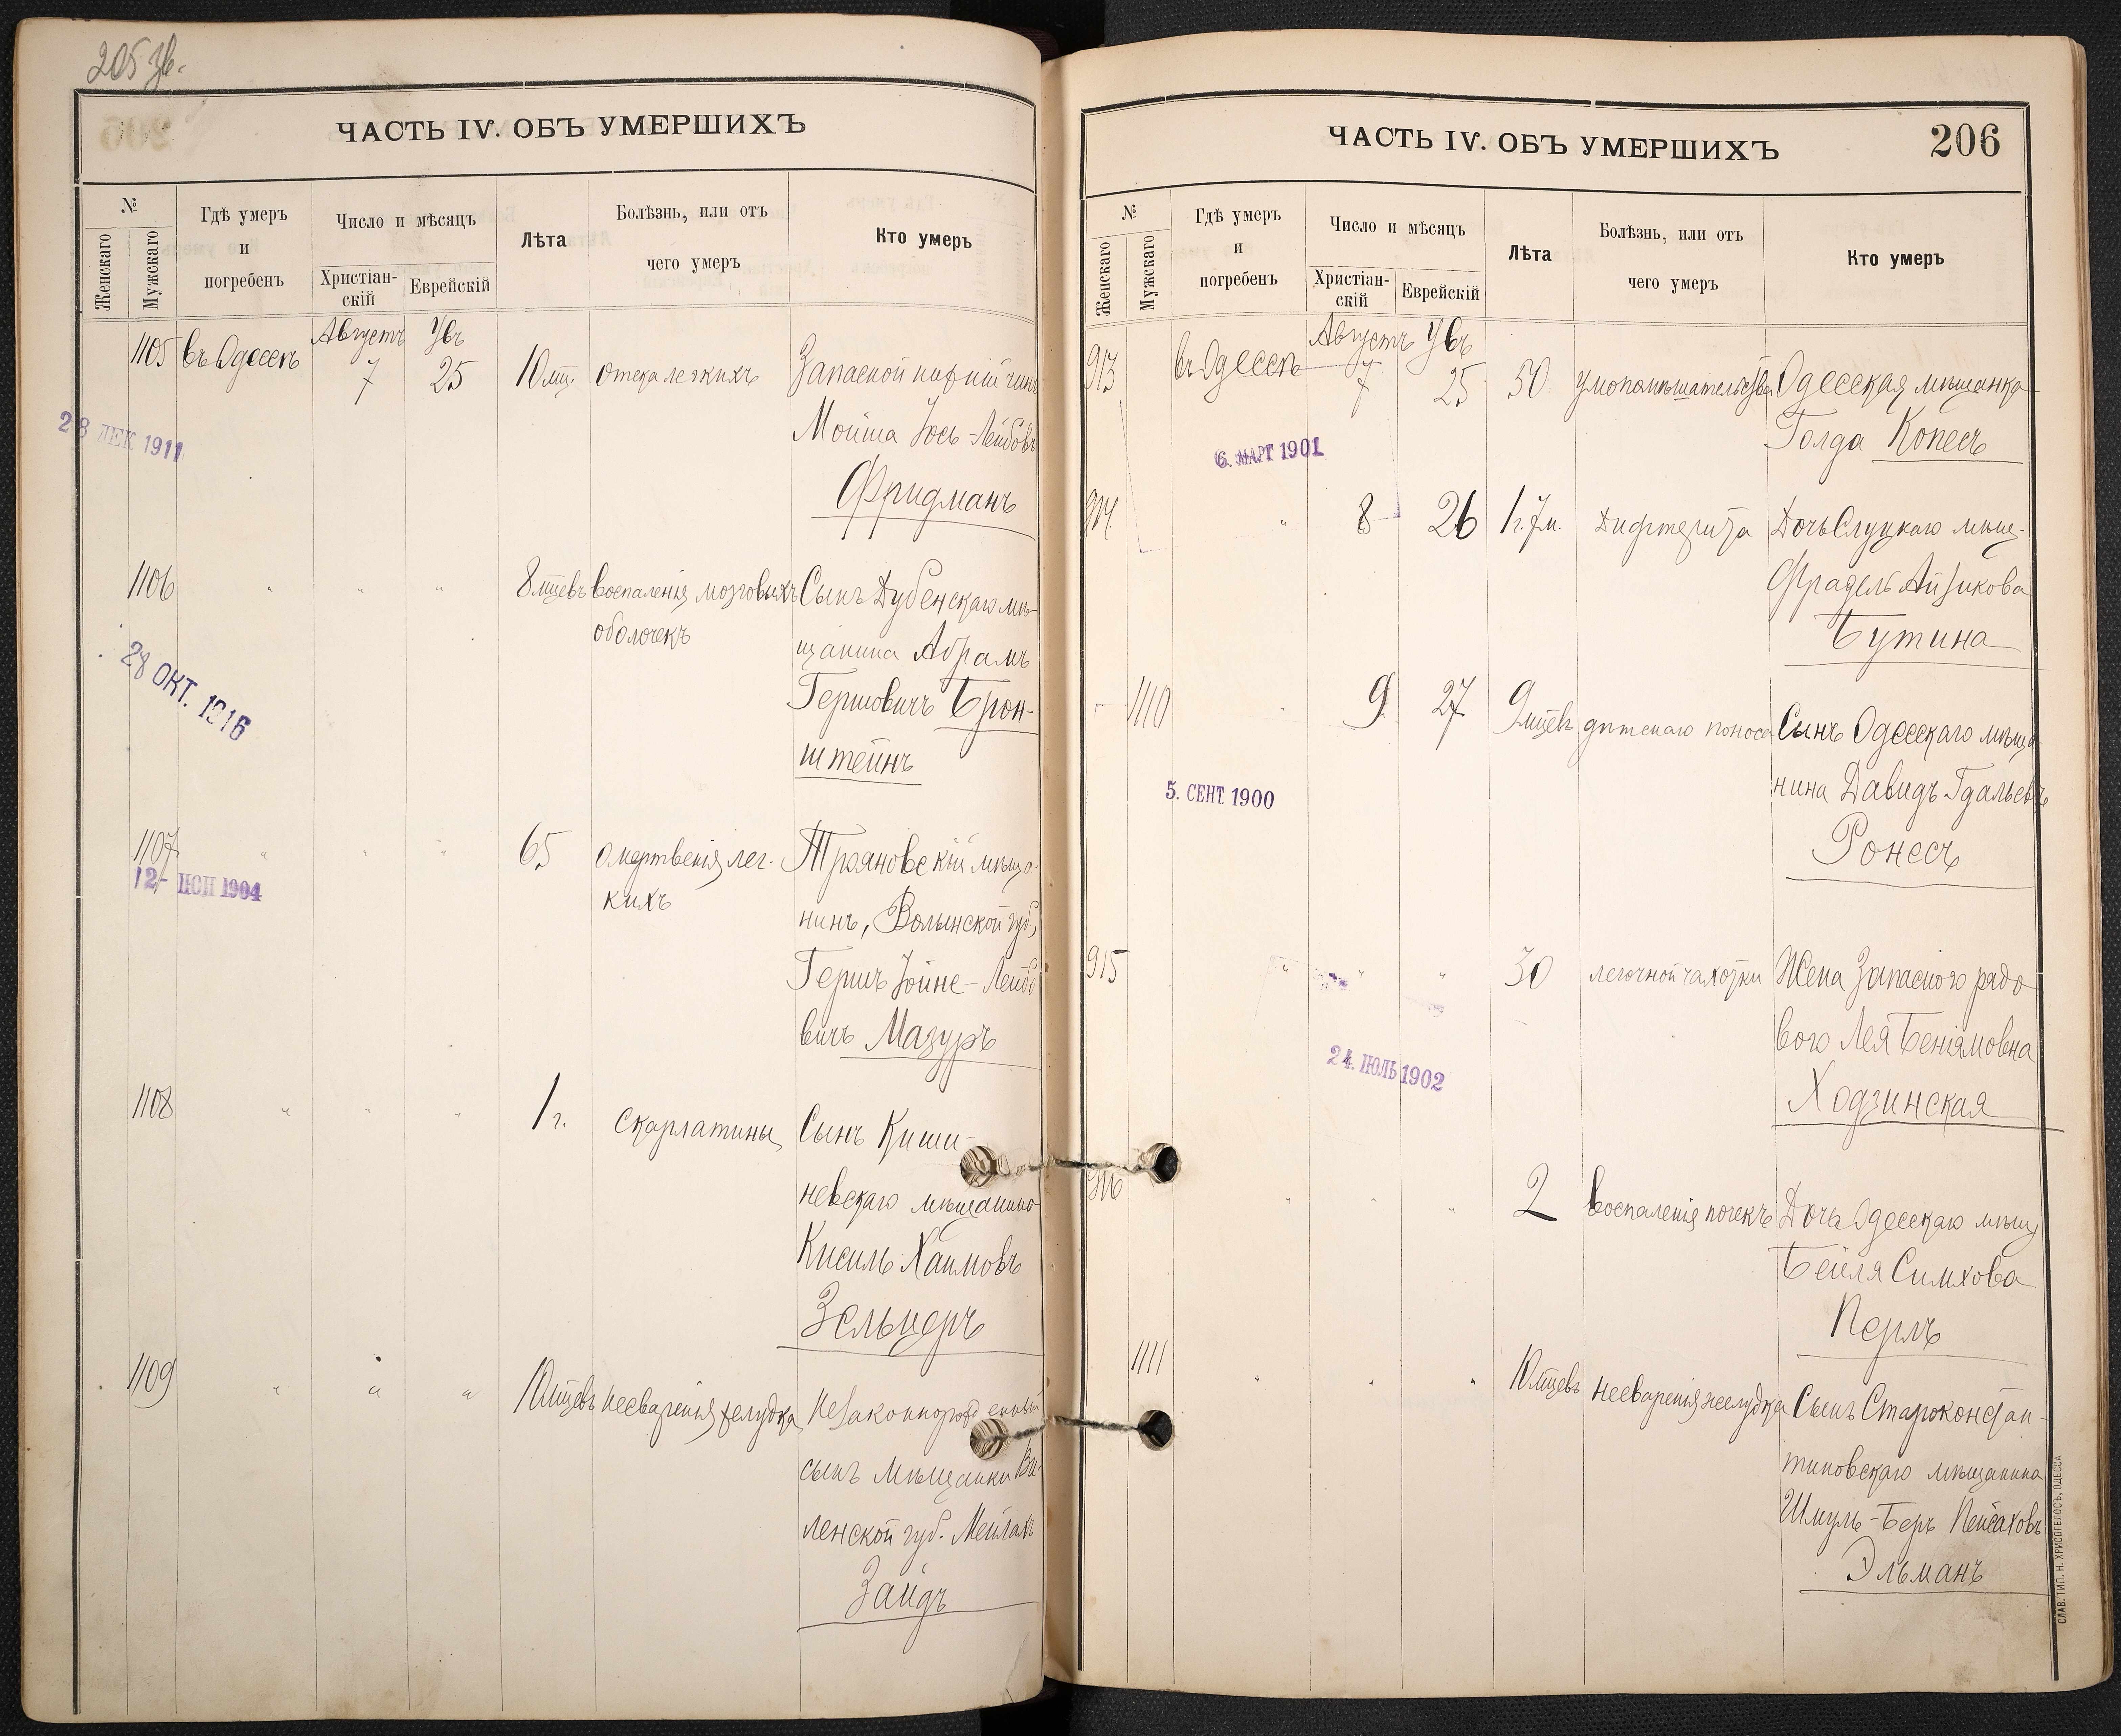 205 зв.
ЧАСТЬ IV. ОБЪ УМЕРШИХЪ
№
Женскаго
Мужскаго
Гдѣ умеръ
и
погребенъ
Число и мѣсяцъ
Христіан-
скій
Еврейскій
Лѣта
Болѣзнь, или отъ
чего умеръ
Кто умеръ
Августъ Увъ
1105 въ Одессѣ 7 25 10 мц. отека легкихъ Запасной нижній чинъ
Мойша Іось-Лейбовъ
28 ДЕК 1911
Фридманъ
1106 " " " 8 мцевъ воспаленія мозговыхъ Сынъ Дубенскаго мѣ-
оболочекъ
щанина Абрамъ
28 ОКТ. 1916
Гершовичъ Брон-
штейнъ
1107 " " " 65 омертвенія лег- Трояновскій мѣща-
12 1904
кихъ
нинъ, Волынской губ.,
Гершъ Іойне-Лейбо
вичъ Мазуръ
1108 " " " 1 г. скарлатины Сынъ Киши-
невскаго мѣщанина
Кисиль Хаимовъ
Зельцеръ
1109 " " " 10 мцевъ несваренія желудка Незаконнорожденный
сынъ мѣщанки Ви-
ленской губ. Мейлахъ
Зайдъ
ЧАСТЬ IV. ОБЪ УМЕРШИХЪ
206
№
Женскаго
Мужскаго
Гдѣ умеръ
и
погребенъ
Число и мѣсяцъ
Христіан-
скій
Еврейскій
Лѣта
Болѣзнь, или отъ
чего умеръ
Кто умеръ
Августъ Увъ
913 въ Одессѣ 7 25 50 умопомѣшательства Одесская мѣщанка
Голда Копесъ
6. МАРТ 1901
914 " 8 26 1 г. 7 м. дифтерита Дочь Слуцкаго мѣщ.
Фрадель Айзикова
Бутина
1110 " 9 27 9 мцевъ дѣтскаго поноса Сынъ Одесскаго мѣща
нина Давидъ Гдальевъ
5. СЕНТ. 1900
Ронесъ
915 " " " 30 легочной чахотки Жена Запасного рядо
вого Лея Беніямовна
24. ІЮЛЬ 1902
Ходзинская
916 " " " 2 воспаленія почекъ Дочь Одесскаго мѣщ
Бейля Симхова
Перль
1111 " " " 10 мцевъ несваренія желудка Сынъ Староконстан-
тиновскаго мѣщанина
Шмуль-Беръ Пейсаховъ
Эльманъ
СЛАВ. ТИП. Н. ХРИСОГЕЛОСЪ, ОДЕССА